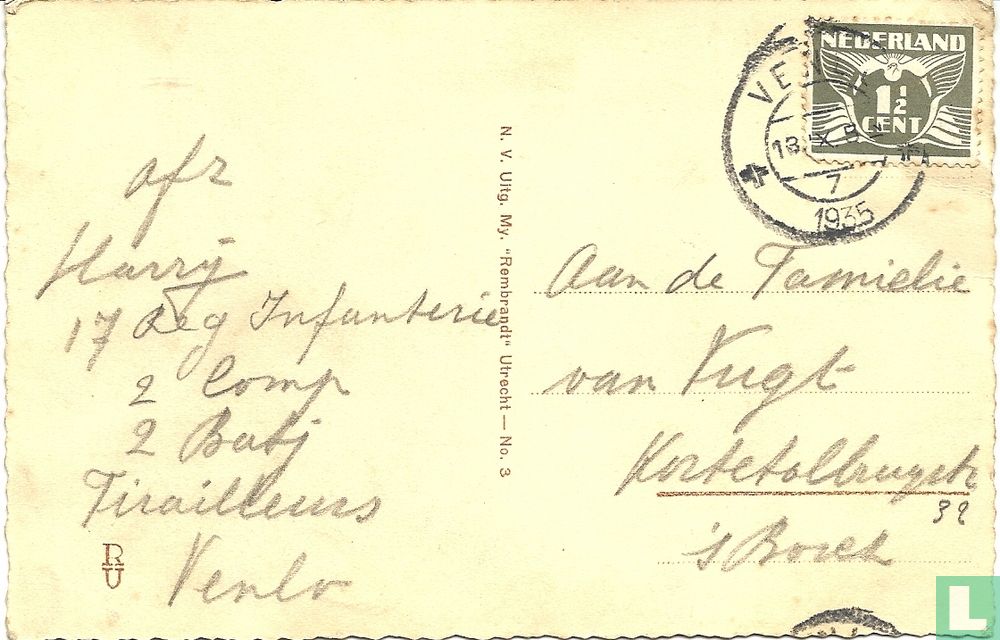 afz
Harry
17 Reg Infanterie
2 Comp
2 Batj
Tirailleurs
Venlo
R
U
N. V. Uitg. My. "Rembrandt" Utrecht — No. 3
NEDERLAND
1½
CENT
VE
7
1935
Aan de Familie
van Vugt
Kortetolbrugstr
32
's Bosch
L